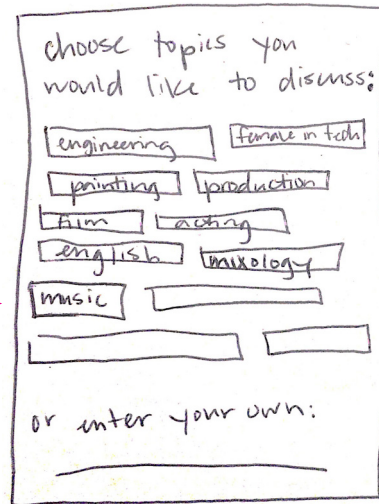 choose topics you
would like to discuss:
engineering female in tech
painting production
film acting
english mixology
music
or enter your own: